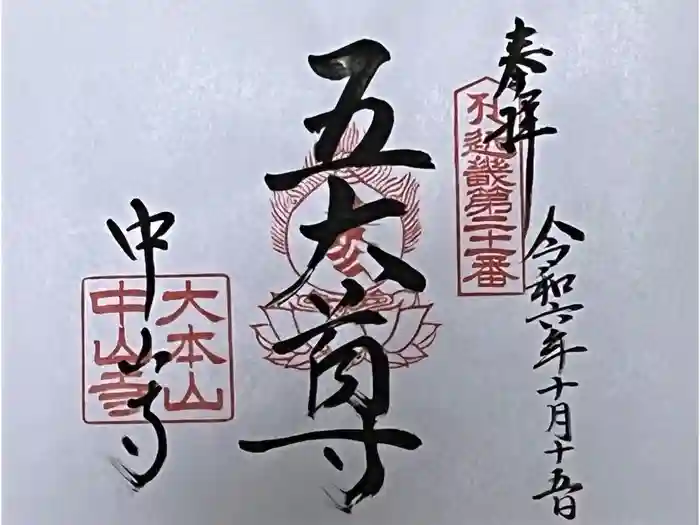 奉拝
不 近畿第二十一番
令和六年十月十五日
五大尊
中山寺
大本山
中山寺